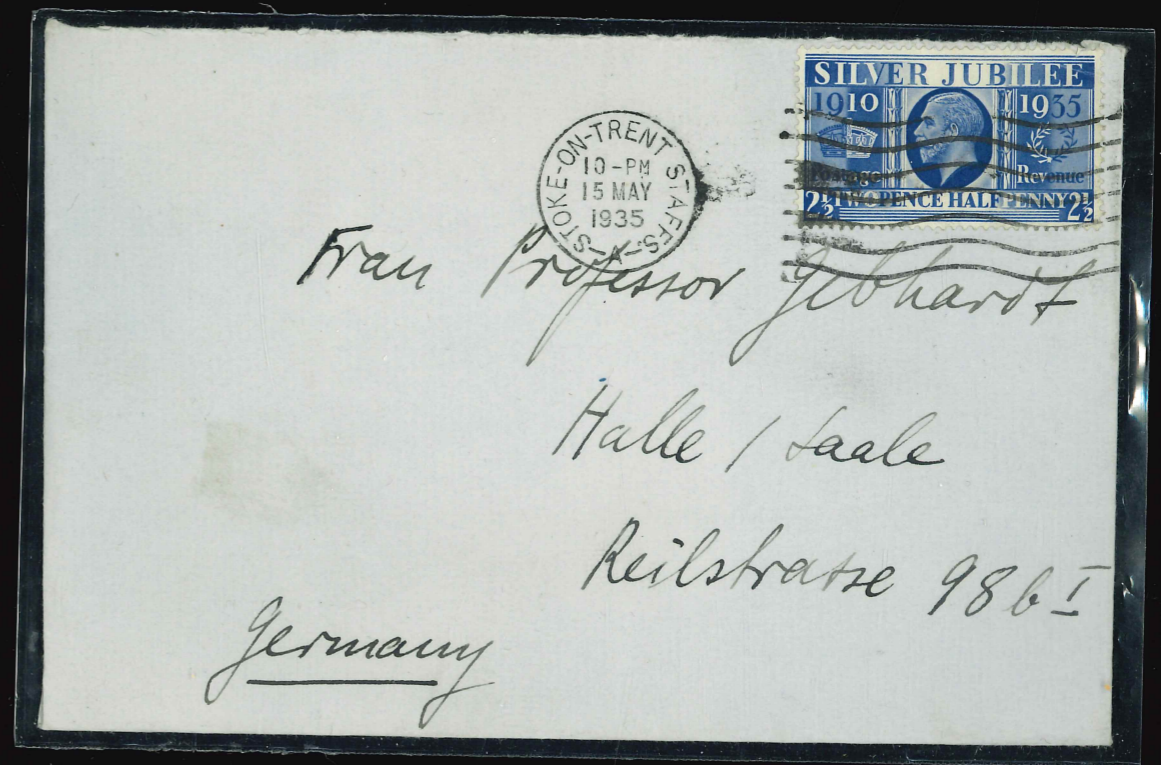 SILVER JUBILEE
1910 1935
Postage Revenue
2½ TWO PENCE HALFPENNY 2½
STOKE-ON-TRENT STAFFS.
10-PM
15 MAY
1935
Frau Professor Gebhardt
Halle / Saale
Reilstrasse 98 b I
Germany